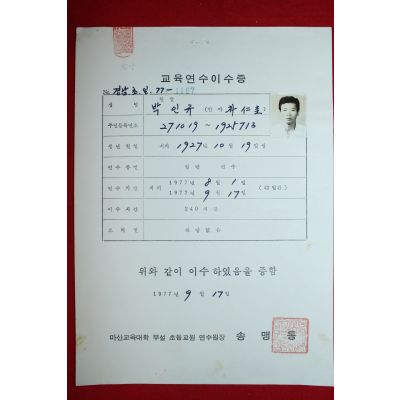 교육연수이수증
No 경남 초일 77-1107
성 명 한글 박인규 (한자 朴仁圭)
주민등록번호 271019 ~ 1925713
생년월일 서기 1927년 10월 19일생
연수종별 일반 연수
연수기간 서기 1977년 8월 1일
1977년 9월 17일 (42일간)
이수시간 240시간
해당없음
위와 같이 이수하였음을 증함
1977년 9월 17일
마산교육대학 부설 초등교원 연수원장 송맹동